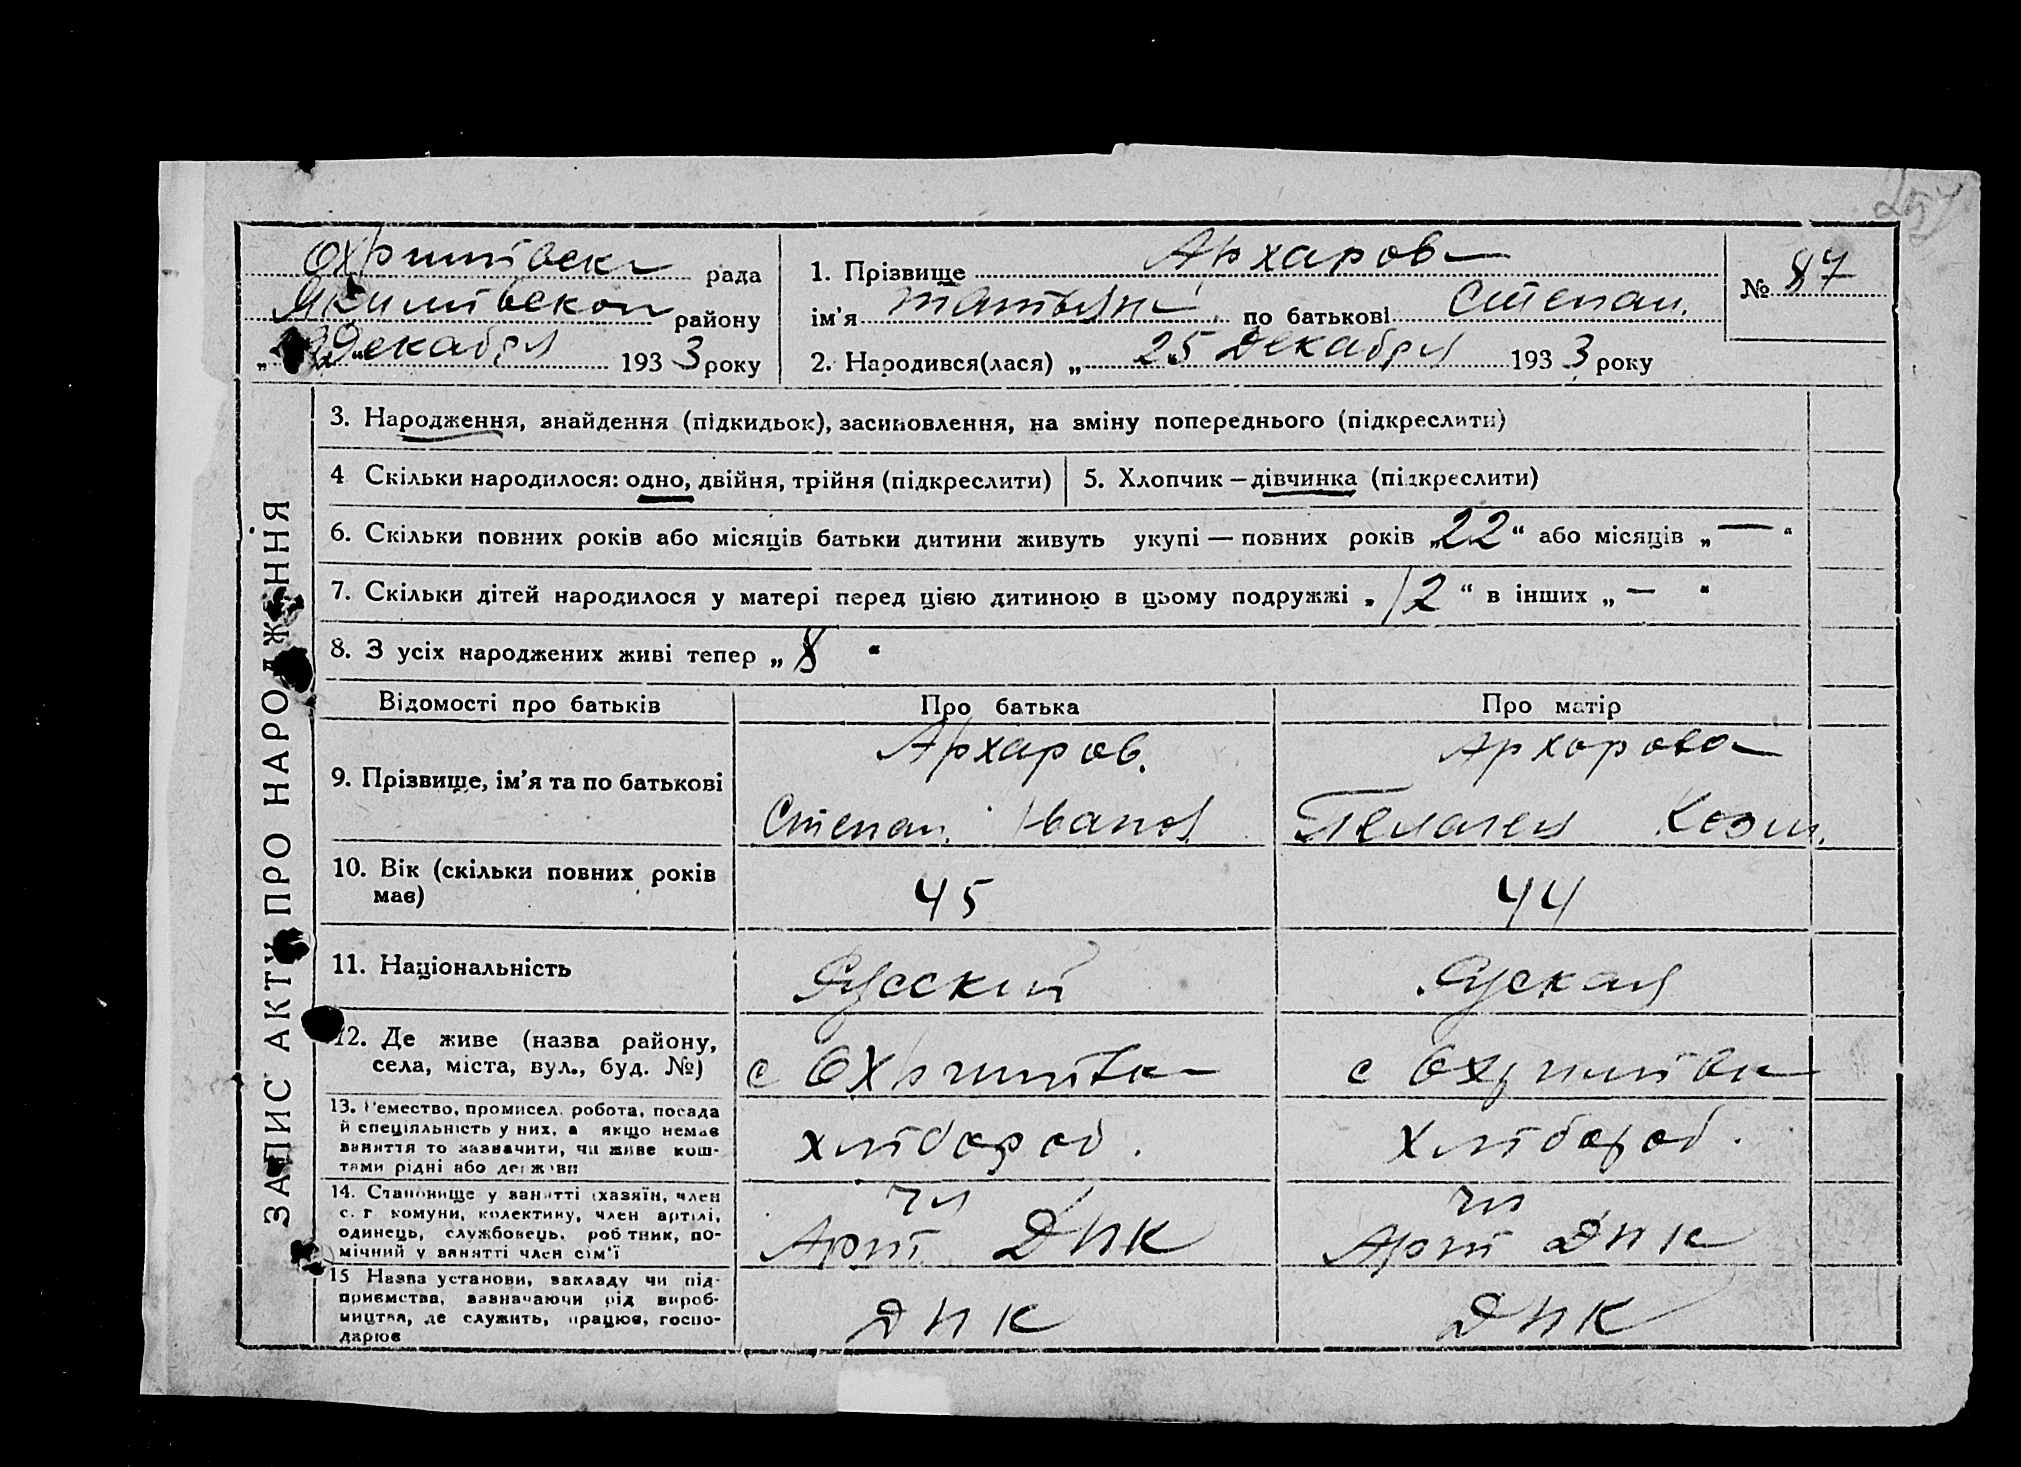 257
Охрімівська рада
Якимівського району
Декабря 1933 року
1. Прізвище Архарова
ім'я Татьяна по батькові Степан.
2. Народився(лася) „25“ Декабря 1933 року
№ 87
ЗАПИС АКТУ ПРО НАРОДЖЕННЯ
3. Народження, знайдення (підкидьок), засиновлення, на зміну попереднього (підкреслити)
4 Скільки народилося: одно, двійня, трійня (підкреслити)
5. Хлопчик – дівчинка (підкреслити)
6. Скільки повних років або місяців батьки дитини живуть укупі — повних років „22“ або місяців „—“
7. Скільки дітей народилося у матері перед цією дитиною в цьому подружжі „12“ в інших „—“
8. З усіх народжених живі тепер „8“
Відомості про батьків Про батька Про матір
9. Прізвище, ім'я та по батькові
Архаров.
Степан. Іванов.
Архарова
Пелагея Козм.
10. Вік (скільки повних років має)
45
44
11. Національність
Русский
Руская
12. Де живе (назва району,
села, міста, вул., буд. №)
с Охрімівка
с Охрімівка
13. Ремество, промисел, робота, посада
й спеціяльність у них, а якщо немає
заняття то зазначити, чи живе кош-
тами рідні або держави
хлібороб.
хлібороб.
14. Становище у занятті (хазяїн, член
с. г комуни, колективу, член артілі,
одинець, службовець, робітник, по-
мічний у занятті член сім'ї
чл
Арт. ДНК
чл
Арт ДНК
15 Назва установи, закладу чи під-
приємства, зазначаючи рід вироб-
ництва, де служить, працює, госпо-
дарює
ДНК
ДНК